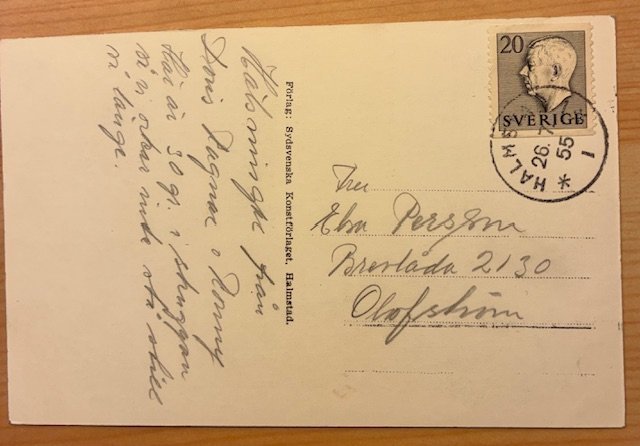 Hälsningar från
Doris Ragnar o Ronny
Här är 30 gr. i skuggan
så vi orkar inte stå still
så länge.
Förlag: Sydsvenska Konstförlaget, Halmstad.
20
SVERIGE
HALMS
26.7
55
1
Fru
Elsa Persson
Brevlåda 2130
Olofström